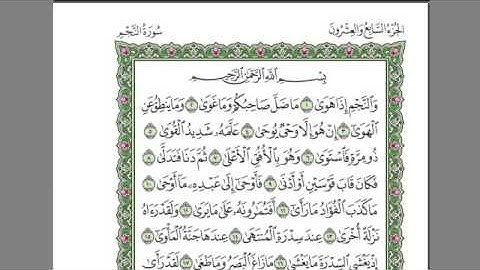 الجُزْءُ السَّابِعُ وَالعِشْرُونَ
سُورَةُ النَّجْمِ
بِسْمِ ٱللَّهِ ٱلرَّحْمَٰنِ ٱلرَّحِيمِ
وَٱلنَّجْمِ إِذَا هَوَىٰ ١ مَا ضَلَّ صَاحِبُكُمْ وَمَا غَوَىٰ ٢ وَمَا يَنطِقُ عَنِ
ٱلْهَوَىٰٓ ٣ إِنْ هُوَ إِلَّا وَحْىٌ يُوحَىٰ ٤ عَلَّمَهُۥ شَدِيدُ ٱلْقُوَىٰ ٥
ذُو مِرَّةٍ فَٱسْتَوَىٰ ٦ وَهُوَ بِٱلْأُفُقِ ٱلْأَعْلَىٰ ٧ ثُمَّ دَنَا فَتَدَلَّىٰ ٨
فَكَانَ قَابَ قَوْسَيْنِ أَوْ أَدْنَىٰ ٩ فَأَوْحَىٰٓ إِلَىٰ عَبْدِهِۦ مَآ أَوْحَىٰ ١٠
مَا كَذَبَ ٱلْفُؤَادُ مَا رَأَىٰٓ ١١ أَفَتُمَٰرُونَهُۥ عَلَىٰ مَا يَرَىٰ ١٢ وَلَقَدْ رَءَاهُ
نَزْلَةً أُخْرَىٰ ١٣ عِندَ سِدْرَةِ ٱلْمُنتَهَىٰ ١٤ عِندَهَا جَنَّةُ ٱلْمَأْوَىٰٓ ١٥
إِذْ يَغْشَى ٱلسِّدْرَةَ مَا يَغْشَىٰ ١٦ مَا زَاغَ ٱلْبَصَرُ وَمَا طَغَىٰ ١٧ لَقَدْ رَأَىٰ